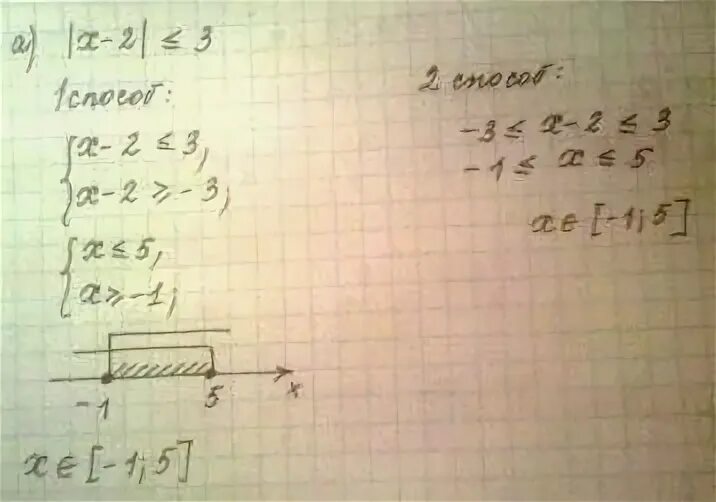 а) |x-2| ≤ 3
1 способ:
x-2 ≤ 3,
x-2 ≥ -3,
x ≤ 5,
x ≥ -1,
-1 5 x
x ∈ [-1; 5]
2 способ:
-3 ≤ x-2 ≤ 3
-1 ≤ x ≤ 5
x ∈ [-1; 5]